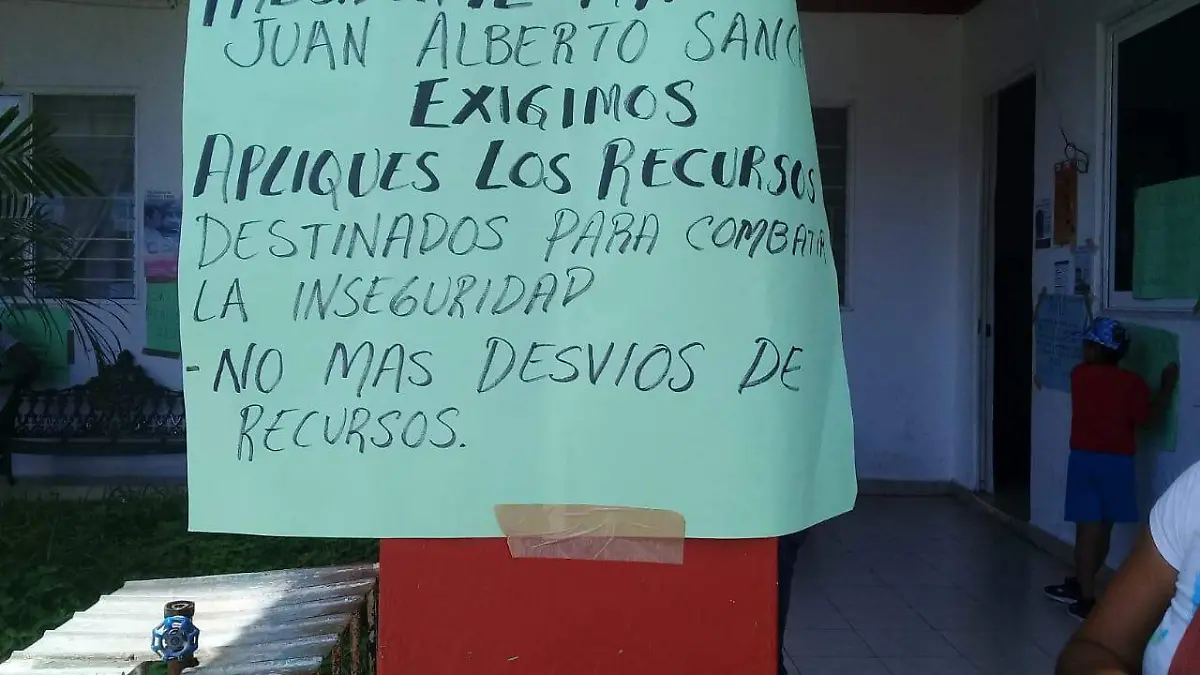 JUAN ALBERTO SANC
EXIGIMOS
APLIQUES LOS RECURSOS
DESTINADOS PARA COMBATIR
LA INSEGURIDAD
-NO MAS DESVIOS DE
RECURSOS.